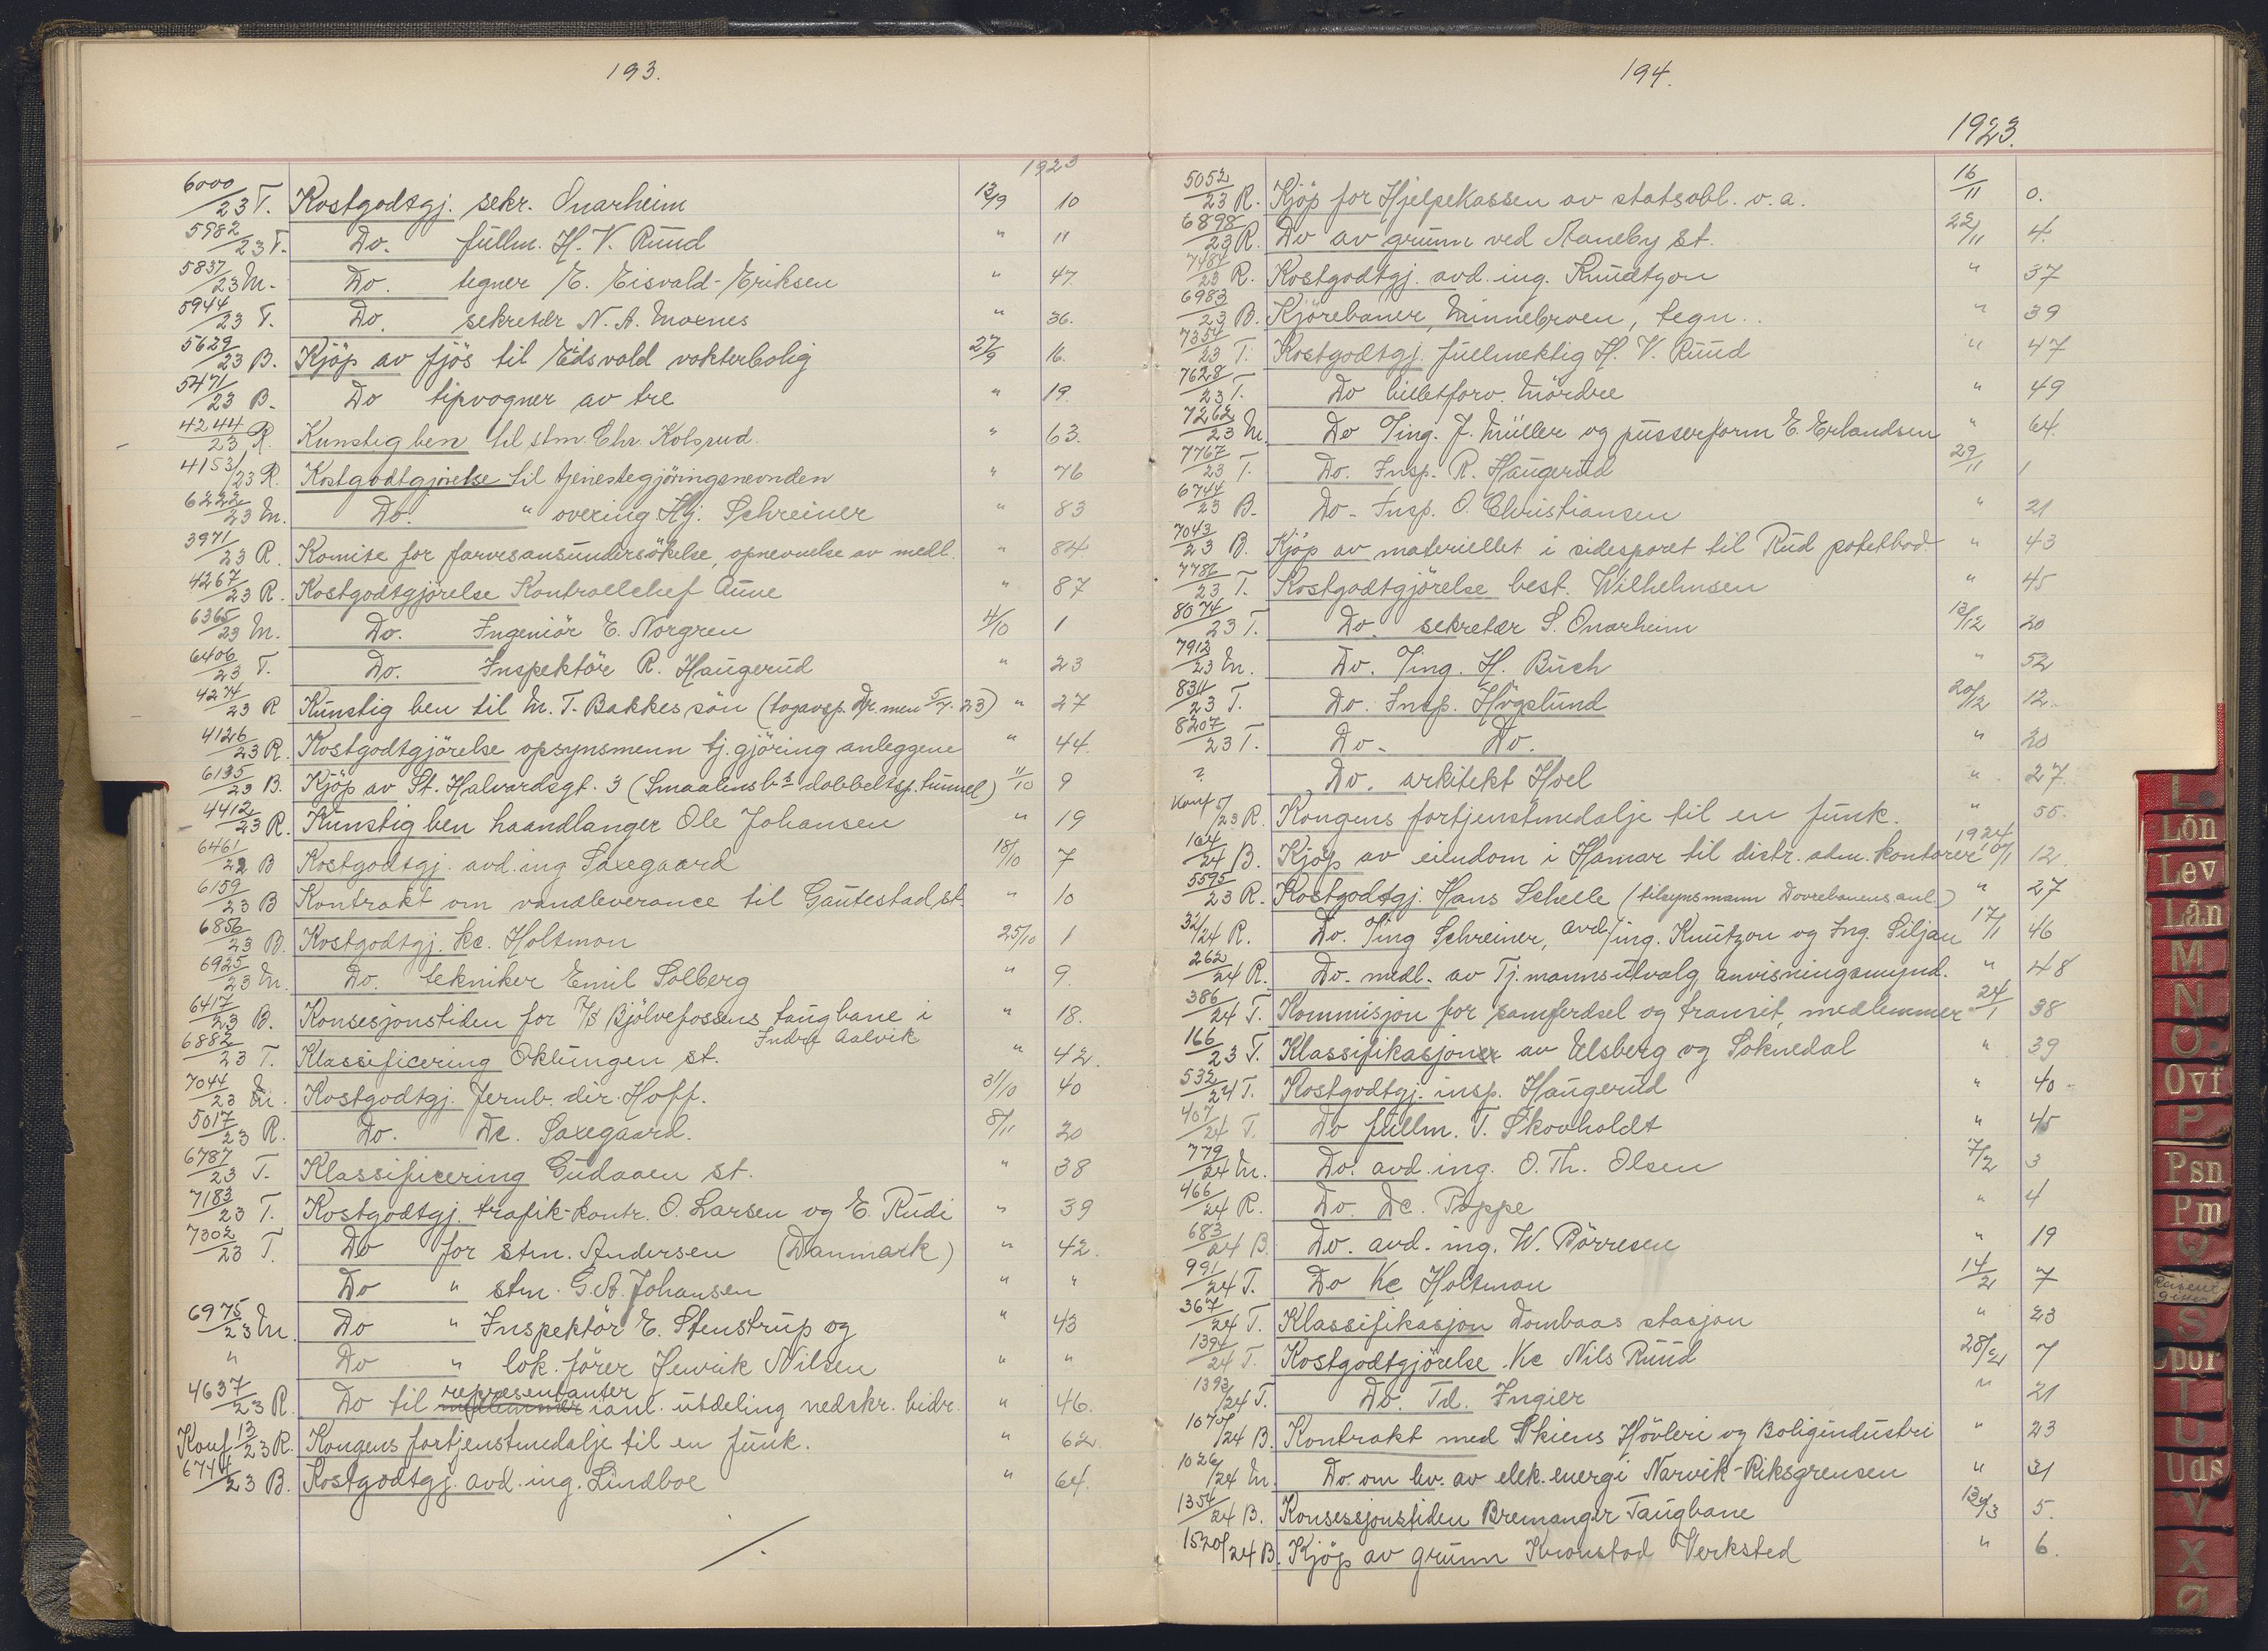 193.
1923
6000/23 T. Kostgodtgj. sekr. Onarheim 13/9 10
5982/23 T. Do. fullm. H. V. Ruud " 11
5837/23 M. Do. tegner E. Eisvald-Eriksen " 47.
5944/23 T. Do. sekretær N. A. Moxnes " 36.
5629/23 B. Kjöp av fjös til Eidsvold vokterbolig 27/9 16.
5471/23 B. Do tipvogner av tre " 19.
4244/23 R. Kunstig ben til stm. Chr. Kolsrud. " 63.
4153/23 R. Kostgodtgjørelse til tjenestegjöringsnevnden " 76
6222/23 M. Do. " overing. Hj. Schreiner " 83
3971/23 R. Komite for farvesansundersökelse, opnevnelse av medl. " 84
4267/23 R. Kostgodtgjörelse Kontrollchef Aune " 87
6365/23 M. Do. Ingeniör E. Norgren 4/10 1
6406/23 T. Do. Inspektör R. Haugerud " 23
4274/23 R Kunstig ben til M. T. Bakkes sön (togavsp. Dr.men 5/7. 23) " 27
4126/23 R. Kostgodtgjörelse opsynsmenn tj.gjöring anleggene " 44.
6135/23 B. Kjöp av St. Halvardsgt. 3 (Smaalensbs dobbeltsp. tunnel) 11/10 9
4412/23 R. Kunstig ben haandlanger Ole Johansen " 19
6461/22 B Kostgodtgj. avd. ing Saxegaard 18/10 7
6159/23 B Kontrakt om vandleverance til Gautestad st. " 10
6856/23 B. Kostgodtgj. kc. Holtmon 25/10 1
6925/23 M. Do. tekniker Emil Solberg " 9.
6417/23 B. Konsesjonstiden for A/S Bjölvefossens taugbane i " 18.
Indre Aalvik
6882/23 T. Klassificering Oklungen st. " 42.
7044/23 M. Kostgodtgj. Jernb. dir. Hoff. 31/10 40
5017/23 R. Do. Dc. Saxegaard. 8/11 20
6787/23 T. Klassificering Gudaaen st. " 38
7183/23 T. Kostgodtgj. trafik-kontr. O. Larsen og E. Rudi " 39
7302/23 T. Do for stm. Andersen (Danmark) " 42.
Do " stm. G. A. Johansen " "
6975/23 M. Do " Inspektör E. Stenstrup og " 43
" Do " lok. förer Henrik Nilsen " "
representanter
4637/23 R. Do til ianl. utdeling nedskr. bidr. " 46.
Konf. 13/23 R. Kongens fortjenstmedalje til en funk. " 62.
6744/23 B. Kostgodtgj. avd. ing. Lindboe " 64.
194.
1923.
5052/23 R. Kjöp for Hjelpekassen av statsobl. o. a. 16/11 0.
6898/23 R. Do av grunn ved Aaneby St. 22/11 4.
7484/23 R. Kostgodtgj. avd. ing. Knudtzon " 37
6983/23 B. Kjörebaner, Minnebroen, tegn.. " 39
7354/23 T. Kostgodtgj. fullmektig H. V. Ruud " 47
7628/23 T. Do billetforv. Mördre " 49
7262/23 M. Do Ting. J. Müller og pusserform E. Erlandsen " 64.
7767/23 T. Do. Insp. R. Haugerud 29/11 1
6744/23 B. Do. Insp. O. Christiansen " 21
7043/23 B. Kjöp av materiellet i sidesporet til Rud potetbod. " 43
7786/23 T. Kostgodtgjörelse best. Wilhelmsen " 45
8074/23 T. Do. sekretær S. Onarheim 13/12 20
7912/23 M. Do. Ting. H. Buch " 52
8311/23 T. Do. Insp. Högslund 20/12 12.
8207/23 T. Do. Do. " 20
? Do. arkitekt Hoel " 27.
Konf 5/23 R. Kongens fortjenstmedalje til en funk. " 55.
1924
164/24 B. Kjöp av eiendom i Hamar til distr. adm. kontorer 12.
5595/23 R. Kostgodtgj. Hans Schelle (tilsynsmann Dovrebanens anl.) " 27
32/24 R. Do. Ting Schreiner, avd. ing. Knutzon og Ing. Siljan 17/1 46
262/24 R. Do. medl. av Tj.mannsutvalg, anvisningsmynd. " 48
386/24 T. Kommisjon for samferdsel og transit, medlemmer 24/1 38
166/23 T. Klassifikasjon av Elsberg og Soknedal " 39
532/24 T. Kostgodtgj. insp. Haugerud " 40
407/24 T. Do fullm. T. Skovholdt " 45
779/24 M. Do. avd. ing. O. Th. Olsen 7/2 3
466/24 R. Do. Dc. Poppe " 4
683/24 B. Do. avd. ing. W. Börresen " 19
991/24 T. Do Kc Holtmon 14/2 7
367/24 T. Klassifikasjon Dombaas stasjon " 23
1394/24 T. Kostgodtgjörelse. Kc Nils Ruud 28/2 7
1393/24 T. Do. Td. Ingier " 21
1070/24 B. Kontrakt med Skiens Hövleri og Boligindustri " 23
1026/24 M. Do om lev. av elek. energi Narvik-Riksgrensen " 31
1354/24 B. Konsessjonstiden Bremanger Taugbane 13/3 5.
1520/24 B. Kjöp av grunn Kronstad Verksted " 6.
L
Lön
Lev
Lån
M
N
O
Ovf
P
Psn
Pm
Q
S
Spor
T
U
Uds
V
X
Ø